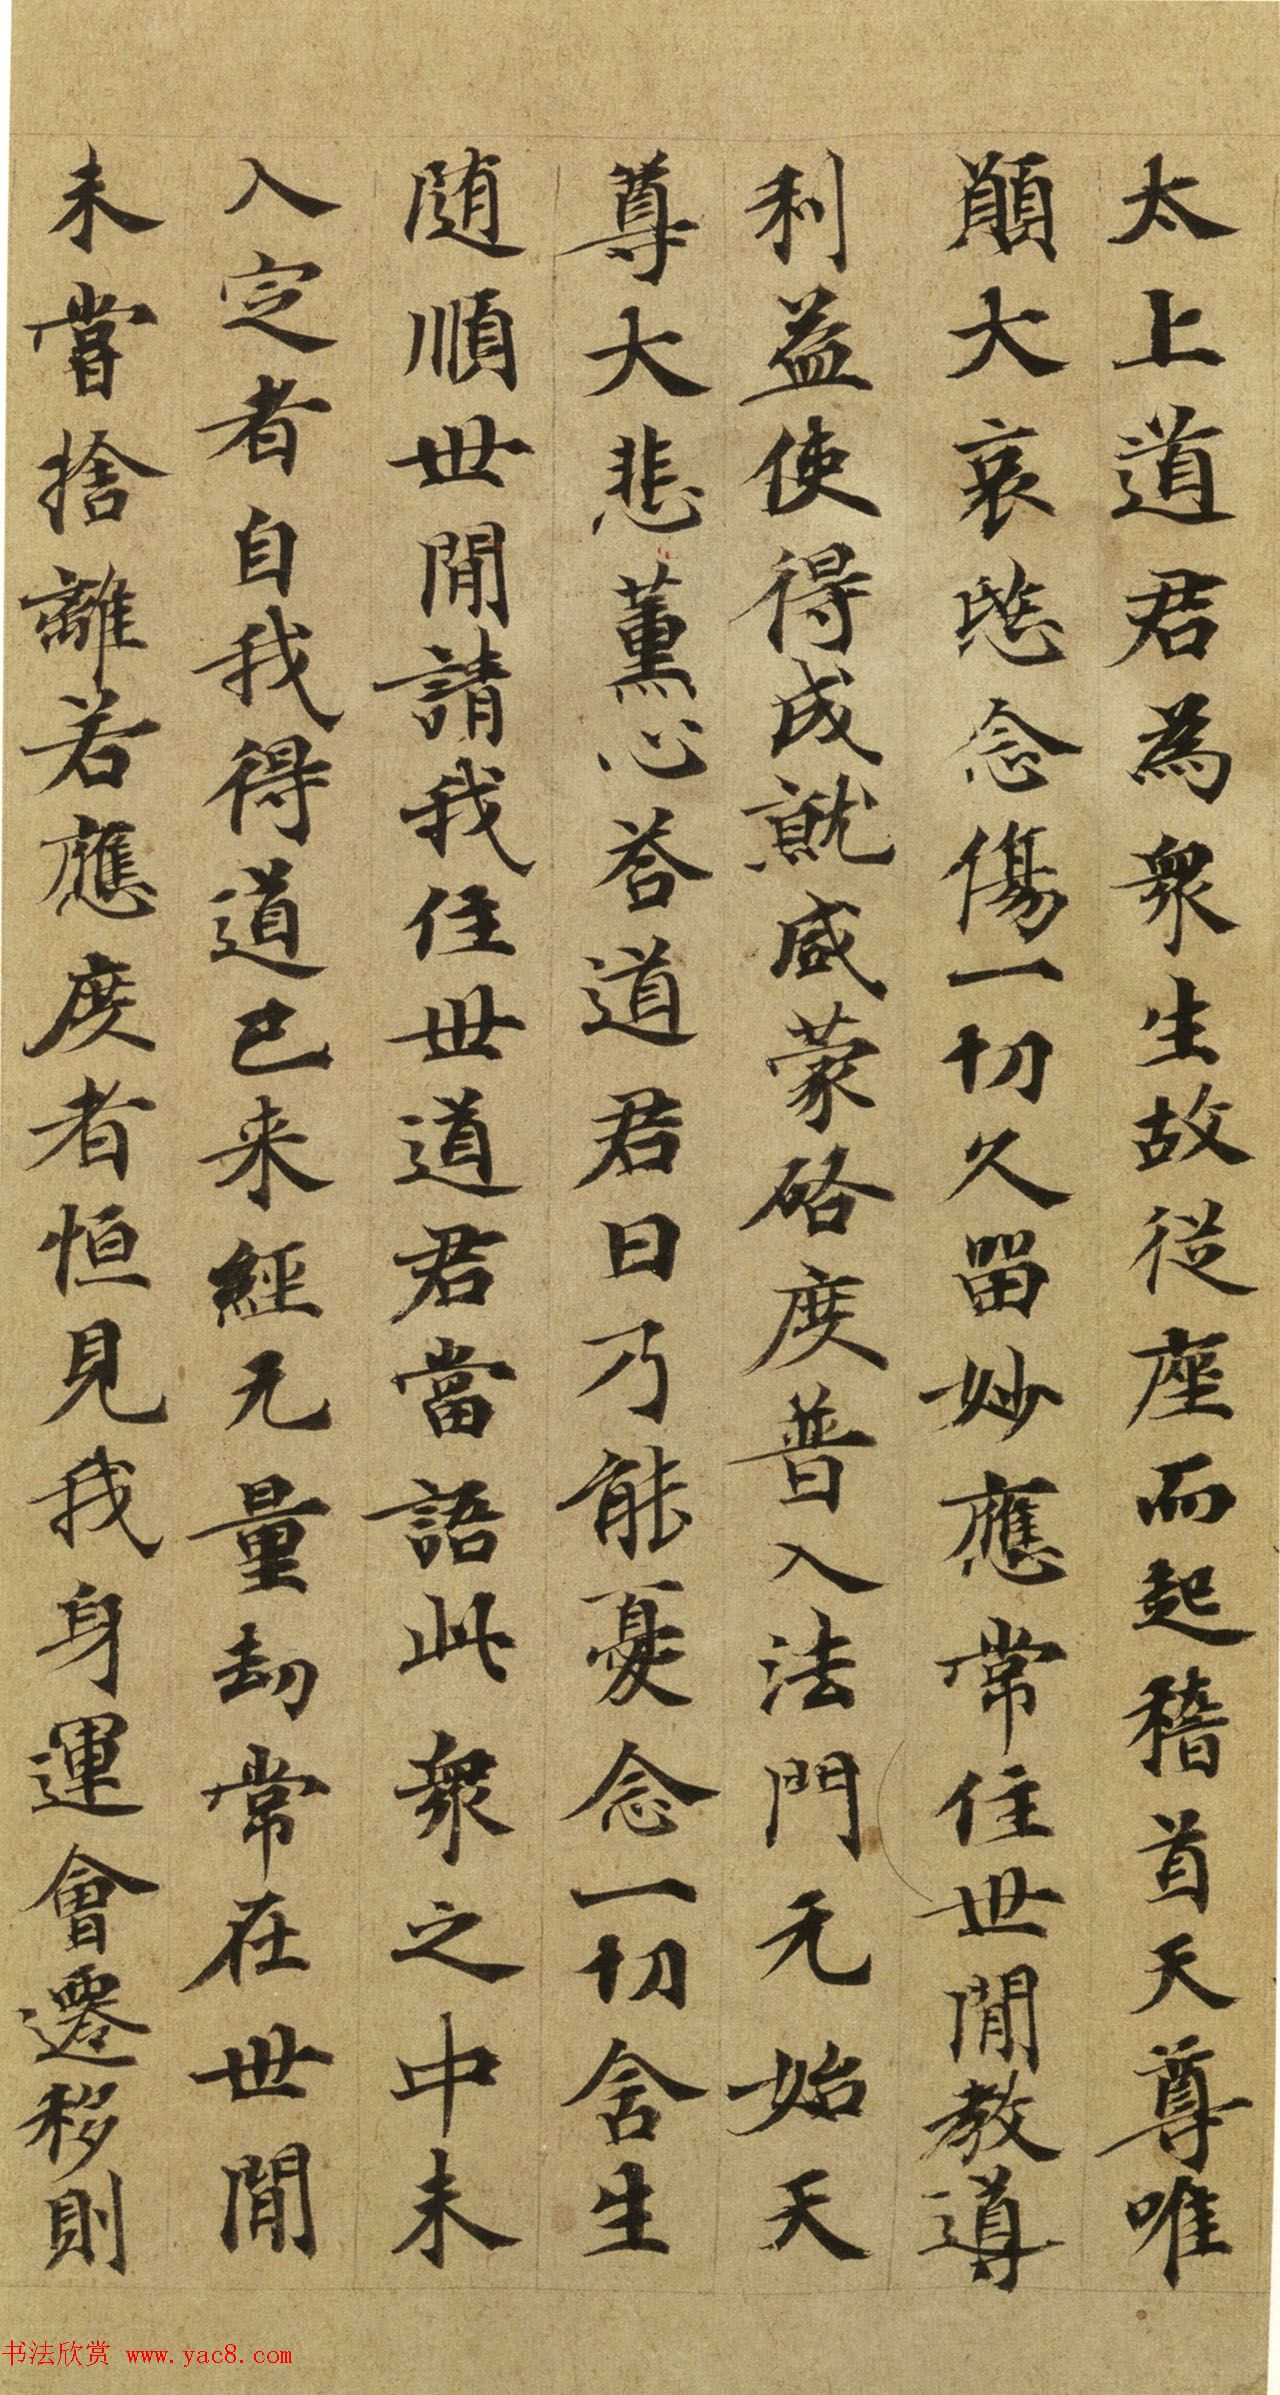 太上道君為衆生故從座而起稽首天尊唯
願大哀愍念傷一切久留妙應常住世閒教導
利益使得成就咸蒙啓度普入法門无始天
尊大悲薰心荅道君曰乃能憂念一切含生
随順世閒請我住世道君當語此衆之中未
入定者自我得道已来經无量劫常在世閒
未嘗捨離若應度者恒見我身運會遷移則
书法欣赏 www.yac8.com